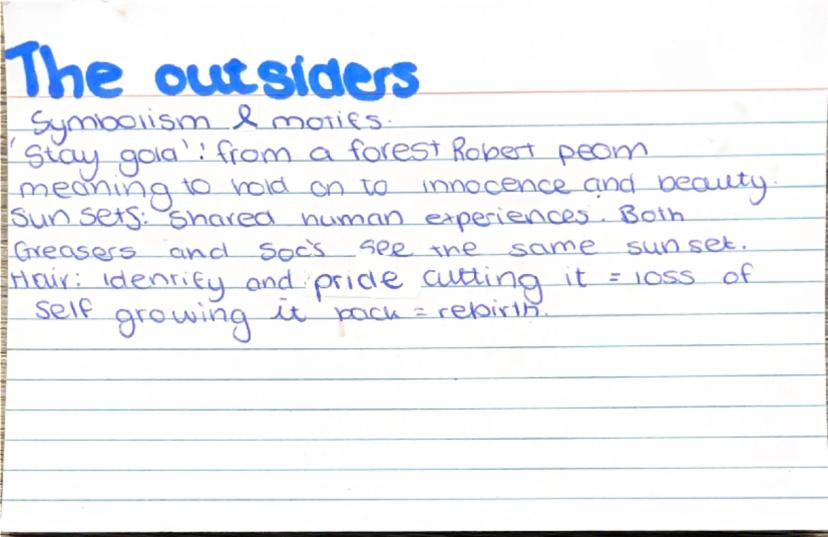 The outsiders
Symbolism & motifs.
'Stay gold': from a forest Robert peom
meaning to hold on to innocence and beauty.
Sun sets: shared human experiences. Both
Greasers and Soc's see the same sunset.
Hair: identify and pride cutting it = loss of
self growing it back = rebirth.